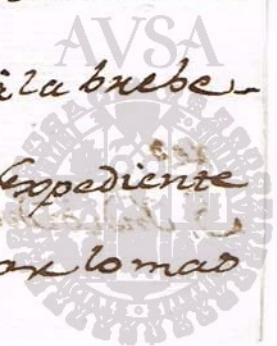 AVSA
à la brebe-
Expediente
lo mas